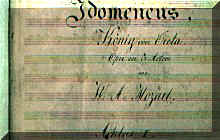 Idomeneus.
König von Creta.
Oper in 3 Acten
von
W. A. Mozart.